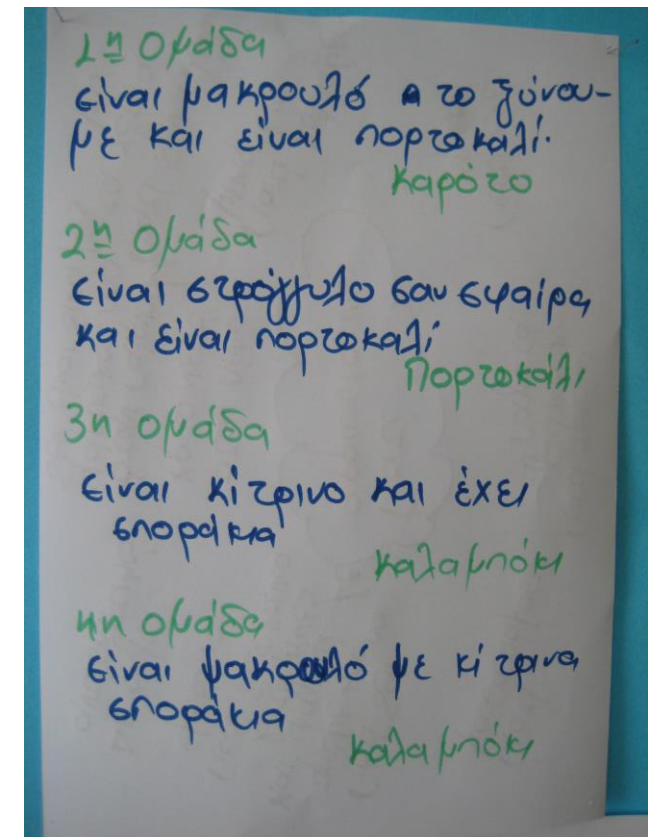 1η Ομάδα
είναι μακρουλό το ξύνου-
με και είναι πορτοκαλί.
καρότο
2η Ομάδα
είναι στρόγγυλο σαν σφαίρα
και είναι πορτοκαλί
Πορτοκάλι
3η ομάδα
είναι κίτρινο και έχει
σποράκια
καλαμπόκι
4η ομάδα
είναι μακρουλό με κίτρινα
σποράκια
καλαμπόκι